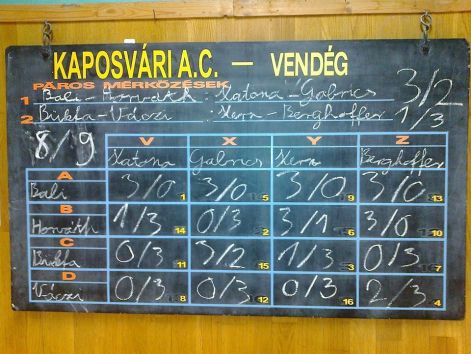 KAPOSVÁRI A.C. – VENDÉG
PÁROS MÉRKŐZÉSEK
1 Bali - Horváth : Katona - Gabrics 3/2
2 Bukta - Váczi : Kern - Berghoffer 1/3
8/9 V X Y Z
Katona Gabrics Kern Berghoffer
A
Bali 3/0 1 3/0 5 3/0 9 3/0 13
B
Horváth 1/3 14 0/3 2 3/1 6 3/0 10
C
Bukta 0/3 11 3/2 15 1/3 3 0/3 7
D
Váczi 0/3 8 0/3 12 0/3 16 2/3 4